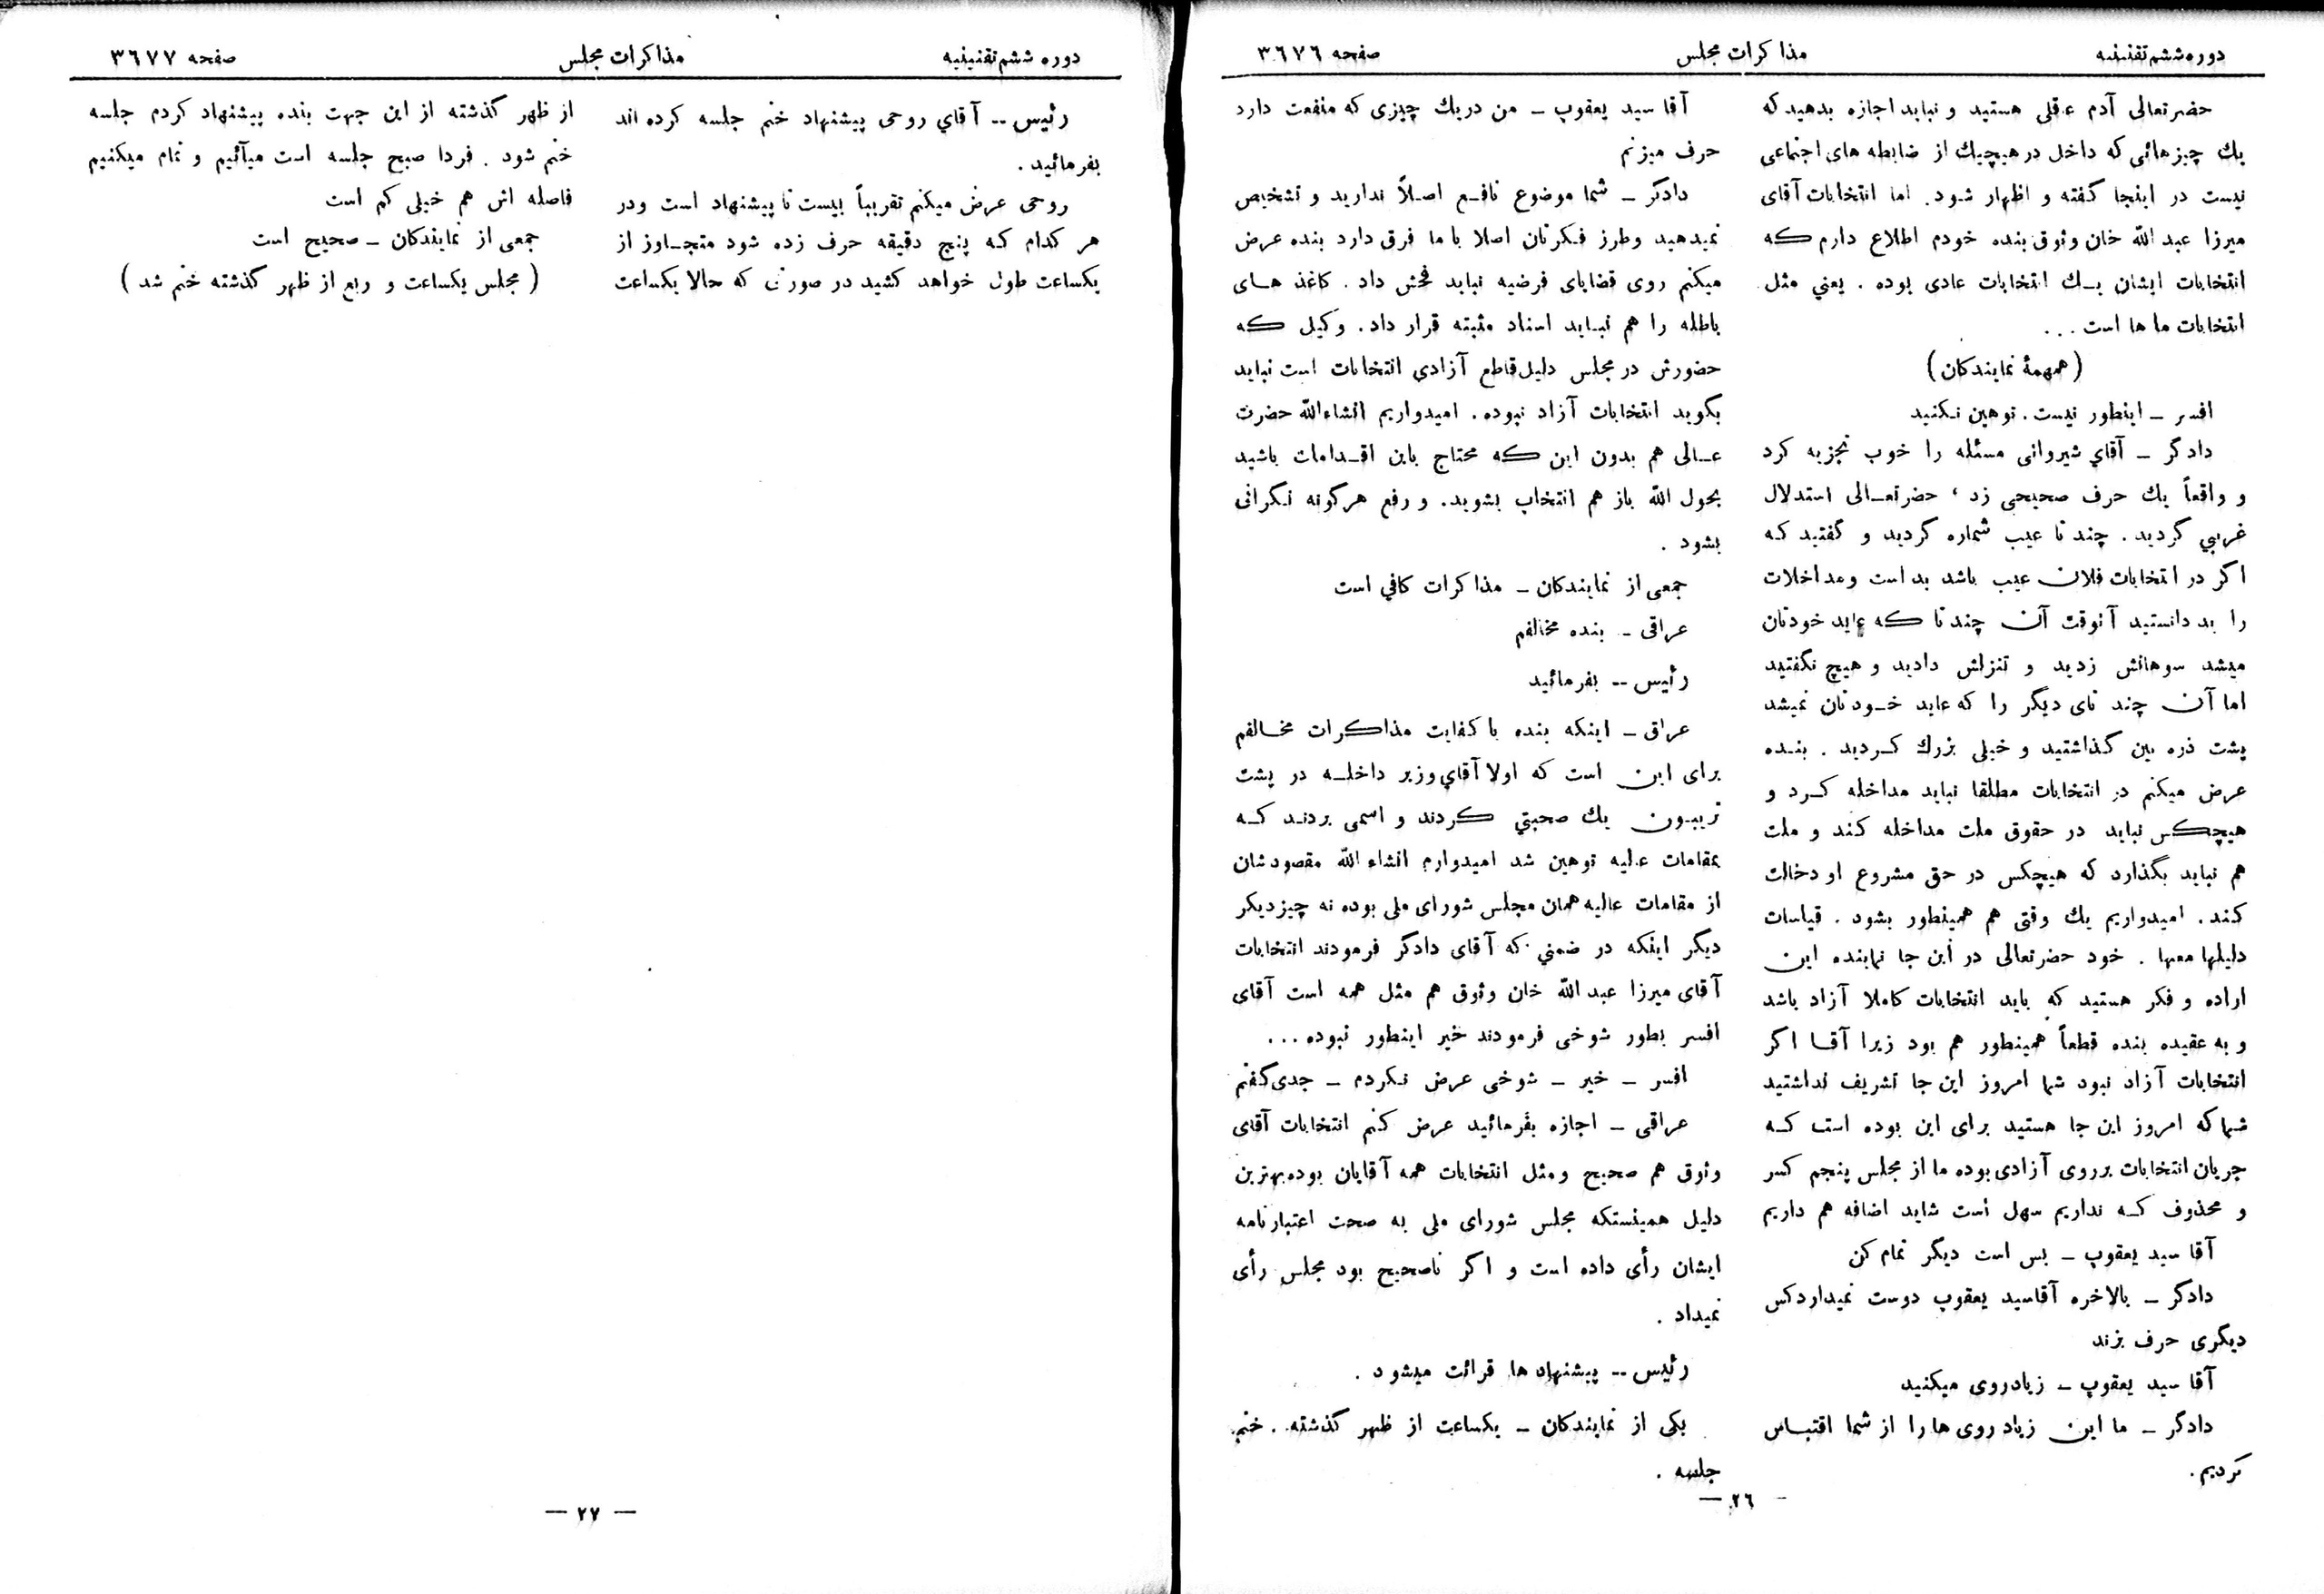 دوره ششم تقنینیه
مذاکرات مجلس
صفحه ٣٦٧٦
حضرتعالی آدم عاقلی هستید و نباید اجازه بدهید که
یك چیزهائی که داخل در هیچیك از ضابطه های اجتماعی
نیست در اینجا گفته و اظهار شود. اما انتخابات آقای
میرزا عبدالله خان وثوق بنده خودم اطلاع دارم که
انتخابات ایشان یك انتخابات عادی بوده . یعنی مثل
انتخابات ما ها است . . .
(همهمهٔ نمایندکان)
افسر ـ اینطور نیست . توهین نکنید
دادگر ـ آقاي شیروانی مسئله را خوب تجزیه کرد
و واقعاً یك حرف صحیحی زد ، حضرتعالی استدلال
غریبي گردید . چند تا عیب شماره گردید و گفتید که
اکر در انتخابات فلان عیب باشد بد است و مداخلات
را بد دانستید آنوقت آن چند تا که عاید خودتان
میشد سوهانش زدید و تنزلش دادید و هیچ نگفتید
اما آن چند تای دیگر را که عاید خودتان نمیشد
پشت ذره بین گذاشتید و خیلی بزرك کردید . بنده
عرض میکنم در انتخابات مطلقا نباید مداخله کرد و
هیچکس نباید در حقوق ملت مداخله کند و ملت
هم نباید بگذارد که هیچکس در حق مشروع او دخالت
کند . امیدواریم یك وقتی هم همینطور بشود . قیاسات
دلیلها معها . خود حضرتعالی در این جا نماینده این
اراده و فکر هستید که باید انتخابات کاملا آزاد باشد
و به عقیده بنده قطعاً همینطور هم بود زیرا آقا اکر
انتخابات آزاد نبود شما امروز این جا تشریف نداشتید
شما که امروز این جا هستید برای این بوده است که
جریان انتخابات بر روی آزادی بوده ما از مجلس پنجم کسر
و محذوف که نداریم سهل است شاید اضافه هم داریم
آقا سید یعقوب ـ بس است دیگر تمام کن
دادگر ـ بالاخره آقاسید یعقوب دوست نمیدارد کس
دیگری حرف بزند
آقا سید یعقوب ـ زیادروی میکنید
دادگر ـ ما این زیاد روی ها را از شما اقتباس
کردیم .
آقا سید یعقوب ـ من در یك چیزی که منفعت دارد
حرف میزنم
دادگر ـ شما موضوع نافع اصلاً ندارید و تشخیص
نمیدهید وطرز فکرتان اصلا با ما فرق دارد بنده عرض
میکنم روی قضایای فرضیه نباید فحش داد . کاغذ های
باطله را هم نباید اسناد مثبته قرار داد . وکیلی که
حضورش در مجلس دلیل قاطع آزادی انتخابات است نباید
بگوید انتخابات آزاد نبوده . امیدواریم انشاءالله حضرت
عالی هم بدون این که محتاج باین اقدامات باشید
بحول الله باز هم انتخاب بشوید . و رفع هرگونه نگرانی
بشود .
جمعی از نمایندکان ـ مذاکرات کافي است
عراقی ـ بنده مخالفم
رئیس -- بفرمائید
عراقی ـ اینکه بنده با کفایت مذاکرات مخالفم
برای این است که اولا آقاي وزیر داخله در پشت
تریبون یك صحبتي کردند و اسمی بردند که
بمقامات عالیه توهین شد امیدوارم انشاء الله مقصودشان
از مقامات عالیه همان مجلس شورای ملی بوده نه چیز دیکر
دیگر اینکه در ضمني که آقای دادگر فرمودند انتخابات
آقای میرزا عبدالله خان وثوق هم مثل همه است آقای
افسر بطور شوخی فرمودند خیر اینطور نبوده . . .
افسر ـ خیر ـ شوخی عرض نکردم ـ جدی گفتم
عراقی ـ اجازه بفرمائید عرض کنم انتخابات آقای
وثوق هم صحیح و مثل انتخابات همه آقایان بوده بهترین
دلیل همینستکه مجلس شورای ملی به صحت اعتبارنامه
ایشان رأی داده است و اکر ناصحیح بود مجلس رأی
نمیداد .
رئیس -- پیشنهاد ها قرائت میشود .
یکی از نمایندکان ـ یکساعت از ظهر گذشته . ختم
جلسه .
— ٢٦ —
دوره ششم تقنینیه
مذاکرات مجلس
صفحه ٣٦٧٧
رئیس -- آقاي روحی پیشنهاد ختم جلسه کرده اند
بفرمائید .
روحی عرض میکنم تقریباً بیست تا پیشنهاد است و در
هر کدام که پنج دقیقه حرف زده شود متجاوز از
یکساعت طول خواهد کشید در صورتی که حالا یکساعت
از ظهر گذشته از این جهت بنده پیشنهاد کردم جلسه
ختم شود . فردا صبح جلسه است میآئیم و تمام میکنیم
فاصله اش هم خیلی کم است
جمعی از نمایندکان ـ صحیح است
( مجلس یکساعت و ربع از ظهر گذشته ختم شد )
— ٢٧ —